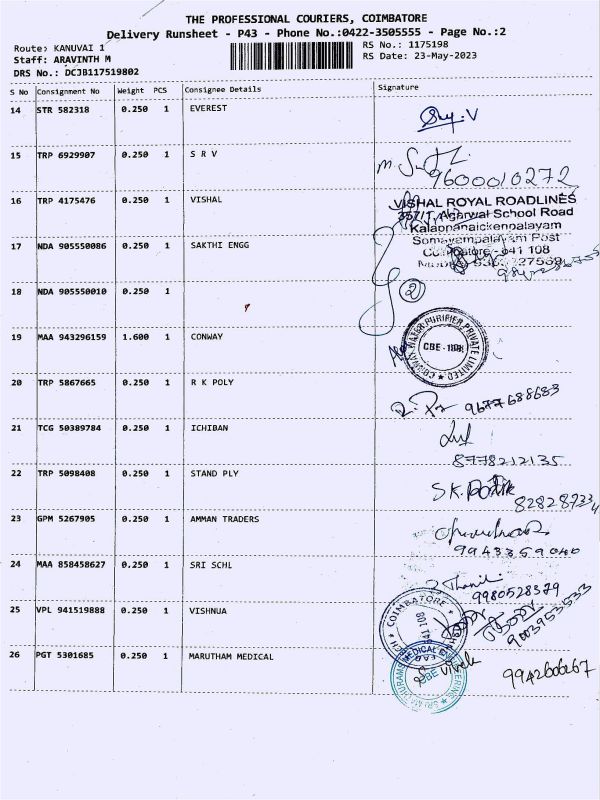 THE PROFESSIONAL COURIERS, COIMBATORE
Delivery Runsheet - P43 - Phone No.:0422-3505555 - Page No.:2
Route: KANUVAI 1
RS No.: 1175198
Staff: ARAVINTH M
RS Date: 23-May-2023
DRS No.: DCJB117519802
S No Consignment No Weight PCS Consignee Details Signature
14 STR 582318 0.250 1 EVEREST
15 TRP 6929907 0.250 1 S R V
9600010272
16 TRP 4175476 0.250 1 VISHAL
VISHAL ROYAL ROADLINES
357/1, Agarwal School Road
Kalappanaickenpalayam
17 NDA 905550086 0.250 1 SAKTHI ENGG
Somayempalayam Post
Coimbatore - 641 108
18 NDA 905550010 0.250 1
2
19 MAA 943296159 1.600 1 CONWAY
CONWAY WATER PURIFIER PRIVATE LIMITED
CBE - 1108
20 TRP 5867665 0.250 1 R K POLY
9677688683
21 TCG 50389784 0.250 1 ICHIBAN
8778212135
22 TRP 5098408 0.250 1 STAND PLY
S.K.
23 GPM 5267905 0.250 1 AMMAN TRADERS
9943359040
24 MAA 858458627 0.250 1 SRI SCHL
9980528379
25 VPL 941519888 0.250 1 VISHNUA
COIMBATORE
641 108
9003953533
26 PGT 5301685 0.250 1 MARUTHAM MEDICAL
MEDICAL
CBE
Vivek
9942606267